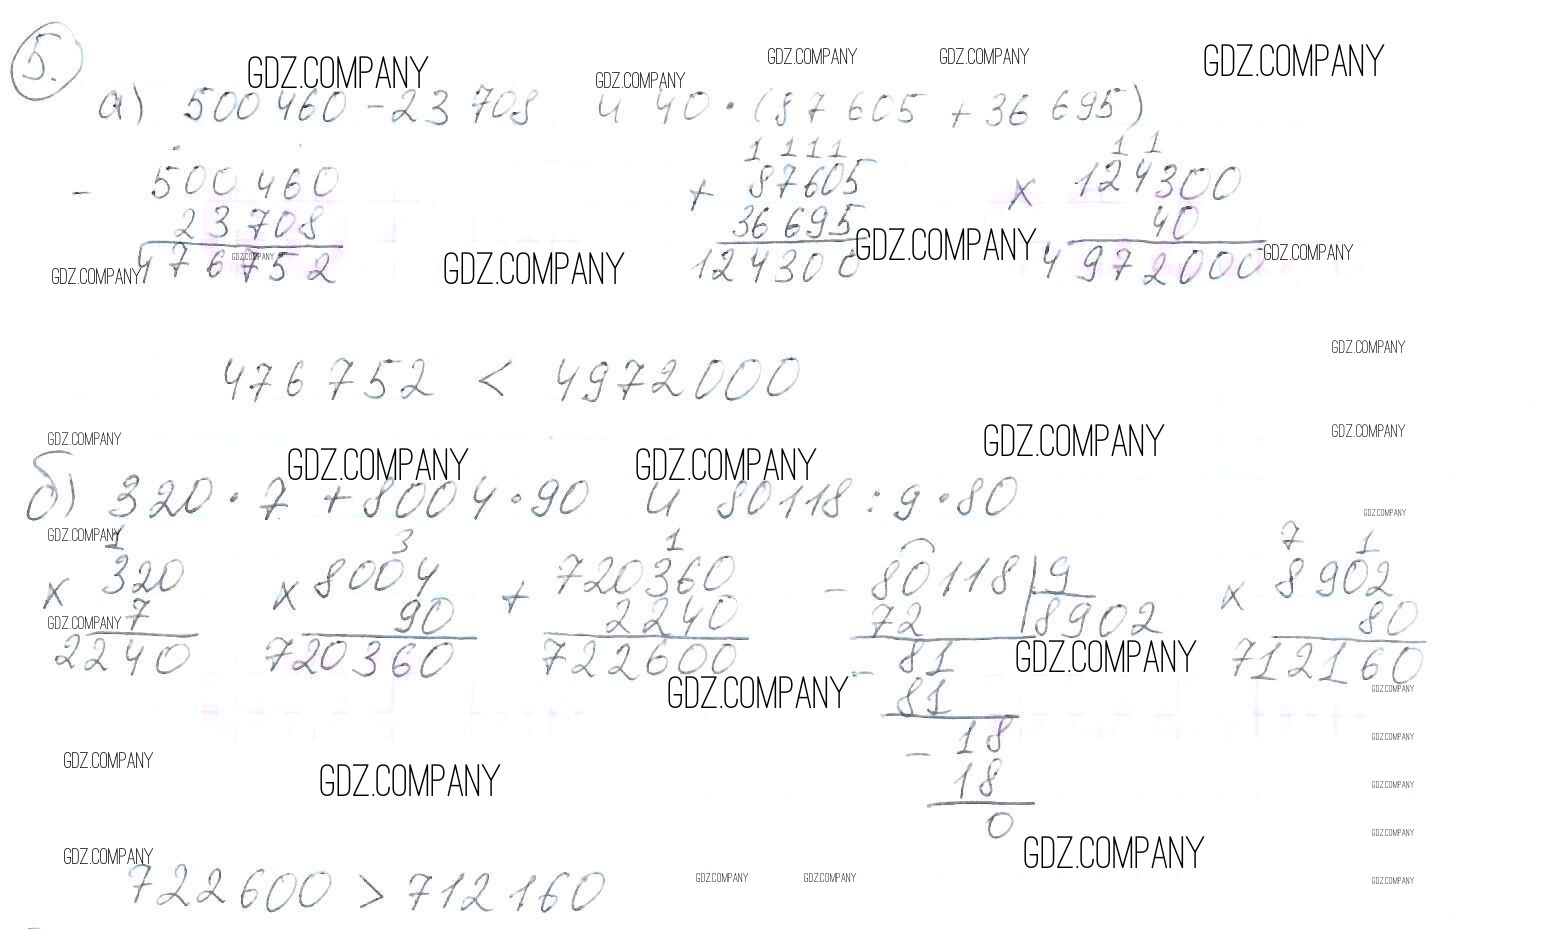 5.
GDZ.COMPANY GDZ.COMPANY GDZ.COMPANY GDZ.COMPANY GDZ.COMPANY
а) 500 460 - 23 708 и 40 · (87 605 + 36 695)
- 500 460
23 708
476752
1 1 1 1
+ 87605
36 695
124300
1 1
x 124300
40
4972000
GDZ.COMPANY GDZ.COMPANY GDZ.COMPANY GDZ.COMPANY GDZ.COMPANY
GDZ.COMPANY
476 752 < 4972000
GDZ.COMPANY GDZ.COMPANY GDZ.COMPANY GDZ.COMPANY GDZ.COMPANY
б) 320 · 7 + 8004 · 90 и 80118 : 9 · 80
GDZ.COMPANY GDZ.COMPANY
1
x 320
7
2240
3
x 8004
90
720360
1
+ 720360
2240
722600
- 80118 | 9
72 8902
- 81
81
- 18
18
0
7 1
x 8902
80
712160
GDZ.COMPANY GDZ.COMPANY GDZ.COMPANY GDZ.COMPANY
GDZ.COMPANY GDZ.COMPANY GDZ.COMPANY GDZ.COMPANY
GDZ.COMPANY GDZ.COMPANY GDZ.COMPANY
722600 > 712160
GDZ.COMPANY GDZ.COMPANY GDZ.COMPANY